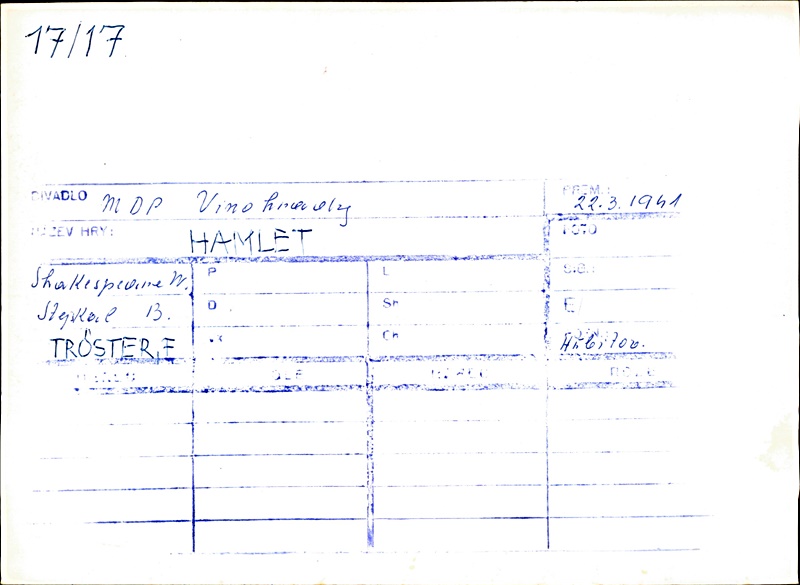 17/17
DIVADLO MDP Vinohrady PREM.: 22.3.1941
NÁZEV HRY: HAMLET FOTO
Shakespeare W. P L
Stejskal B. D Sr E/
TRÖSTER,F Ch